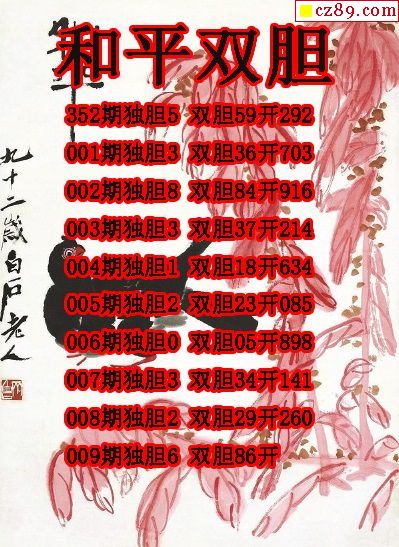 cz89.com
和平双胆
352期独胆5 双胆59开292
001期独胆3 双胆36开703
002期独胆8 双胆84开916
003期独胆3 双胆37开214
004期独胆1 双胆18开634
005期独胆2 双胆23开085
006期独胆0 双胆05开898
007期独胆3 双胆34开141
008期独胆2 双胆29开260
009期独胆6 双胆86开
九十二岁白石老人